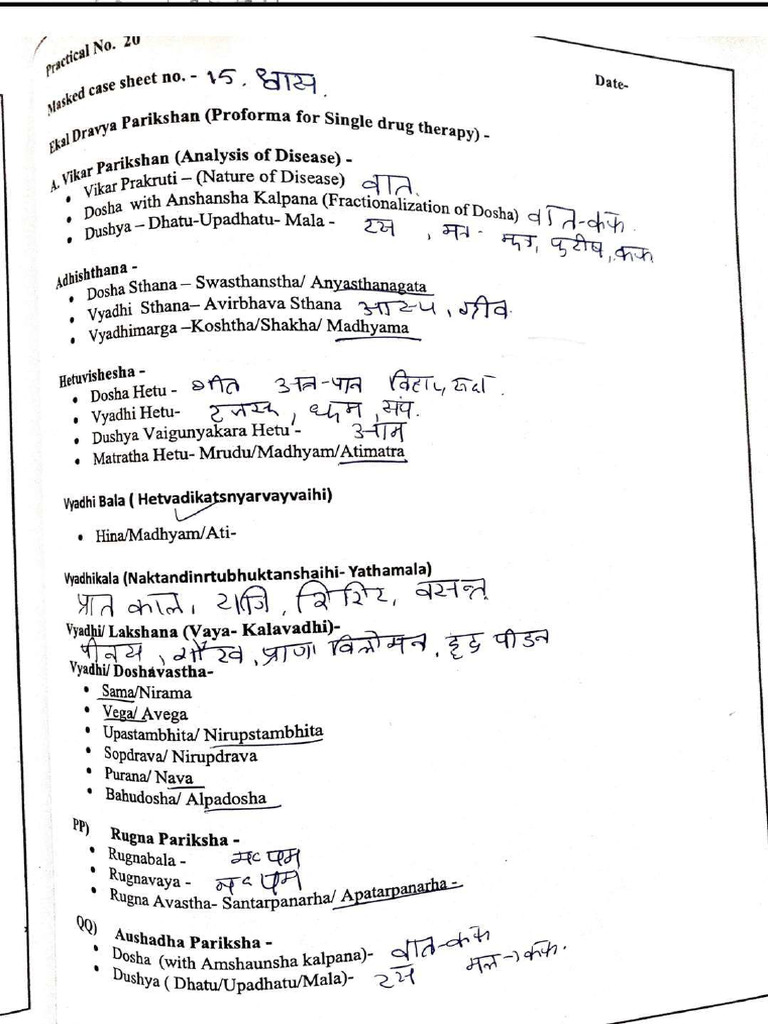 Practical No. 20
Masked case sheet no. - 15. श्वास.
Date-
Ekal Dravya Parikshan (Proforma for Single drug therapy) -
A. Vikar Parikshan (Analysis of Disease) -
• Vikar Prakruti – (Nature of Disease) वात.
• Dosha with Anshansha Kalpana (Fractionalization of Dosha) वात-कफ.
• Dushya – Dhatu-Upadhatu- Mala - रस , मल - मूत्र, पुरीष, कफ
Adhishthana -
• Dosha Sthana – Swasthanstha/ Anyasthanagata
• Vyadhi Sthana– Avirbhava Sthana आस्य , ग्रीवा
• Vyadhimarga –Koshtha/Shakha/ Madhyama
Hetuvishesha -
• Dosha Hetu - शीत अन्न-पान विहार,
• Vyadhi Hetu- रजस्क , धूम ,
• Dushya Vaigunyakara Hetu - आम
• Matratha Hetu- Mrudu/Madhyam/Atimatra
Vyadhi Bala ( Hetvadikatsnyarvayvaihi)
• Hina/Madhyam/Ati-
Vyadhikala (Naktandinrtubhuktanshaihi- Yathamala)
प्रात काल, रात्रि, शिशिर, वसन्त
Vyadhi/ Lakshana (Vaya- Kalavadhi)-
पीनस , प्राण विलोमन, हृद पीडन
Vyadhi/ Doshavastha-
• Sama/Nirama
• Vega/ Avega
• Upastambhita/ Nirupstambhita
• Sopdrava/ Nirupdrava
• Purana/ Nava
• Bahudosha/ Alpadosha
PP) Rugna Pariksha -
• Rugnabala - मध्यम
• Rugnavaya - मध्यम
• Rugna Avastha- Santarpanarha/ Apatarpanarha -
QQ) Aushadha Pariksha -
• Dosha (with Amshaunsha kalpana)- वात-कफ
• Dushya ( Dhatu/Upadhatu/Mala)- रस मल → कफ.